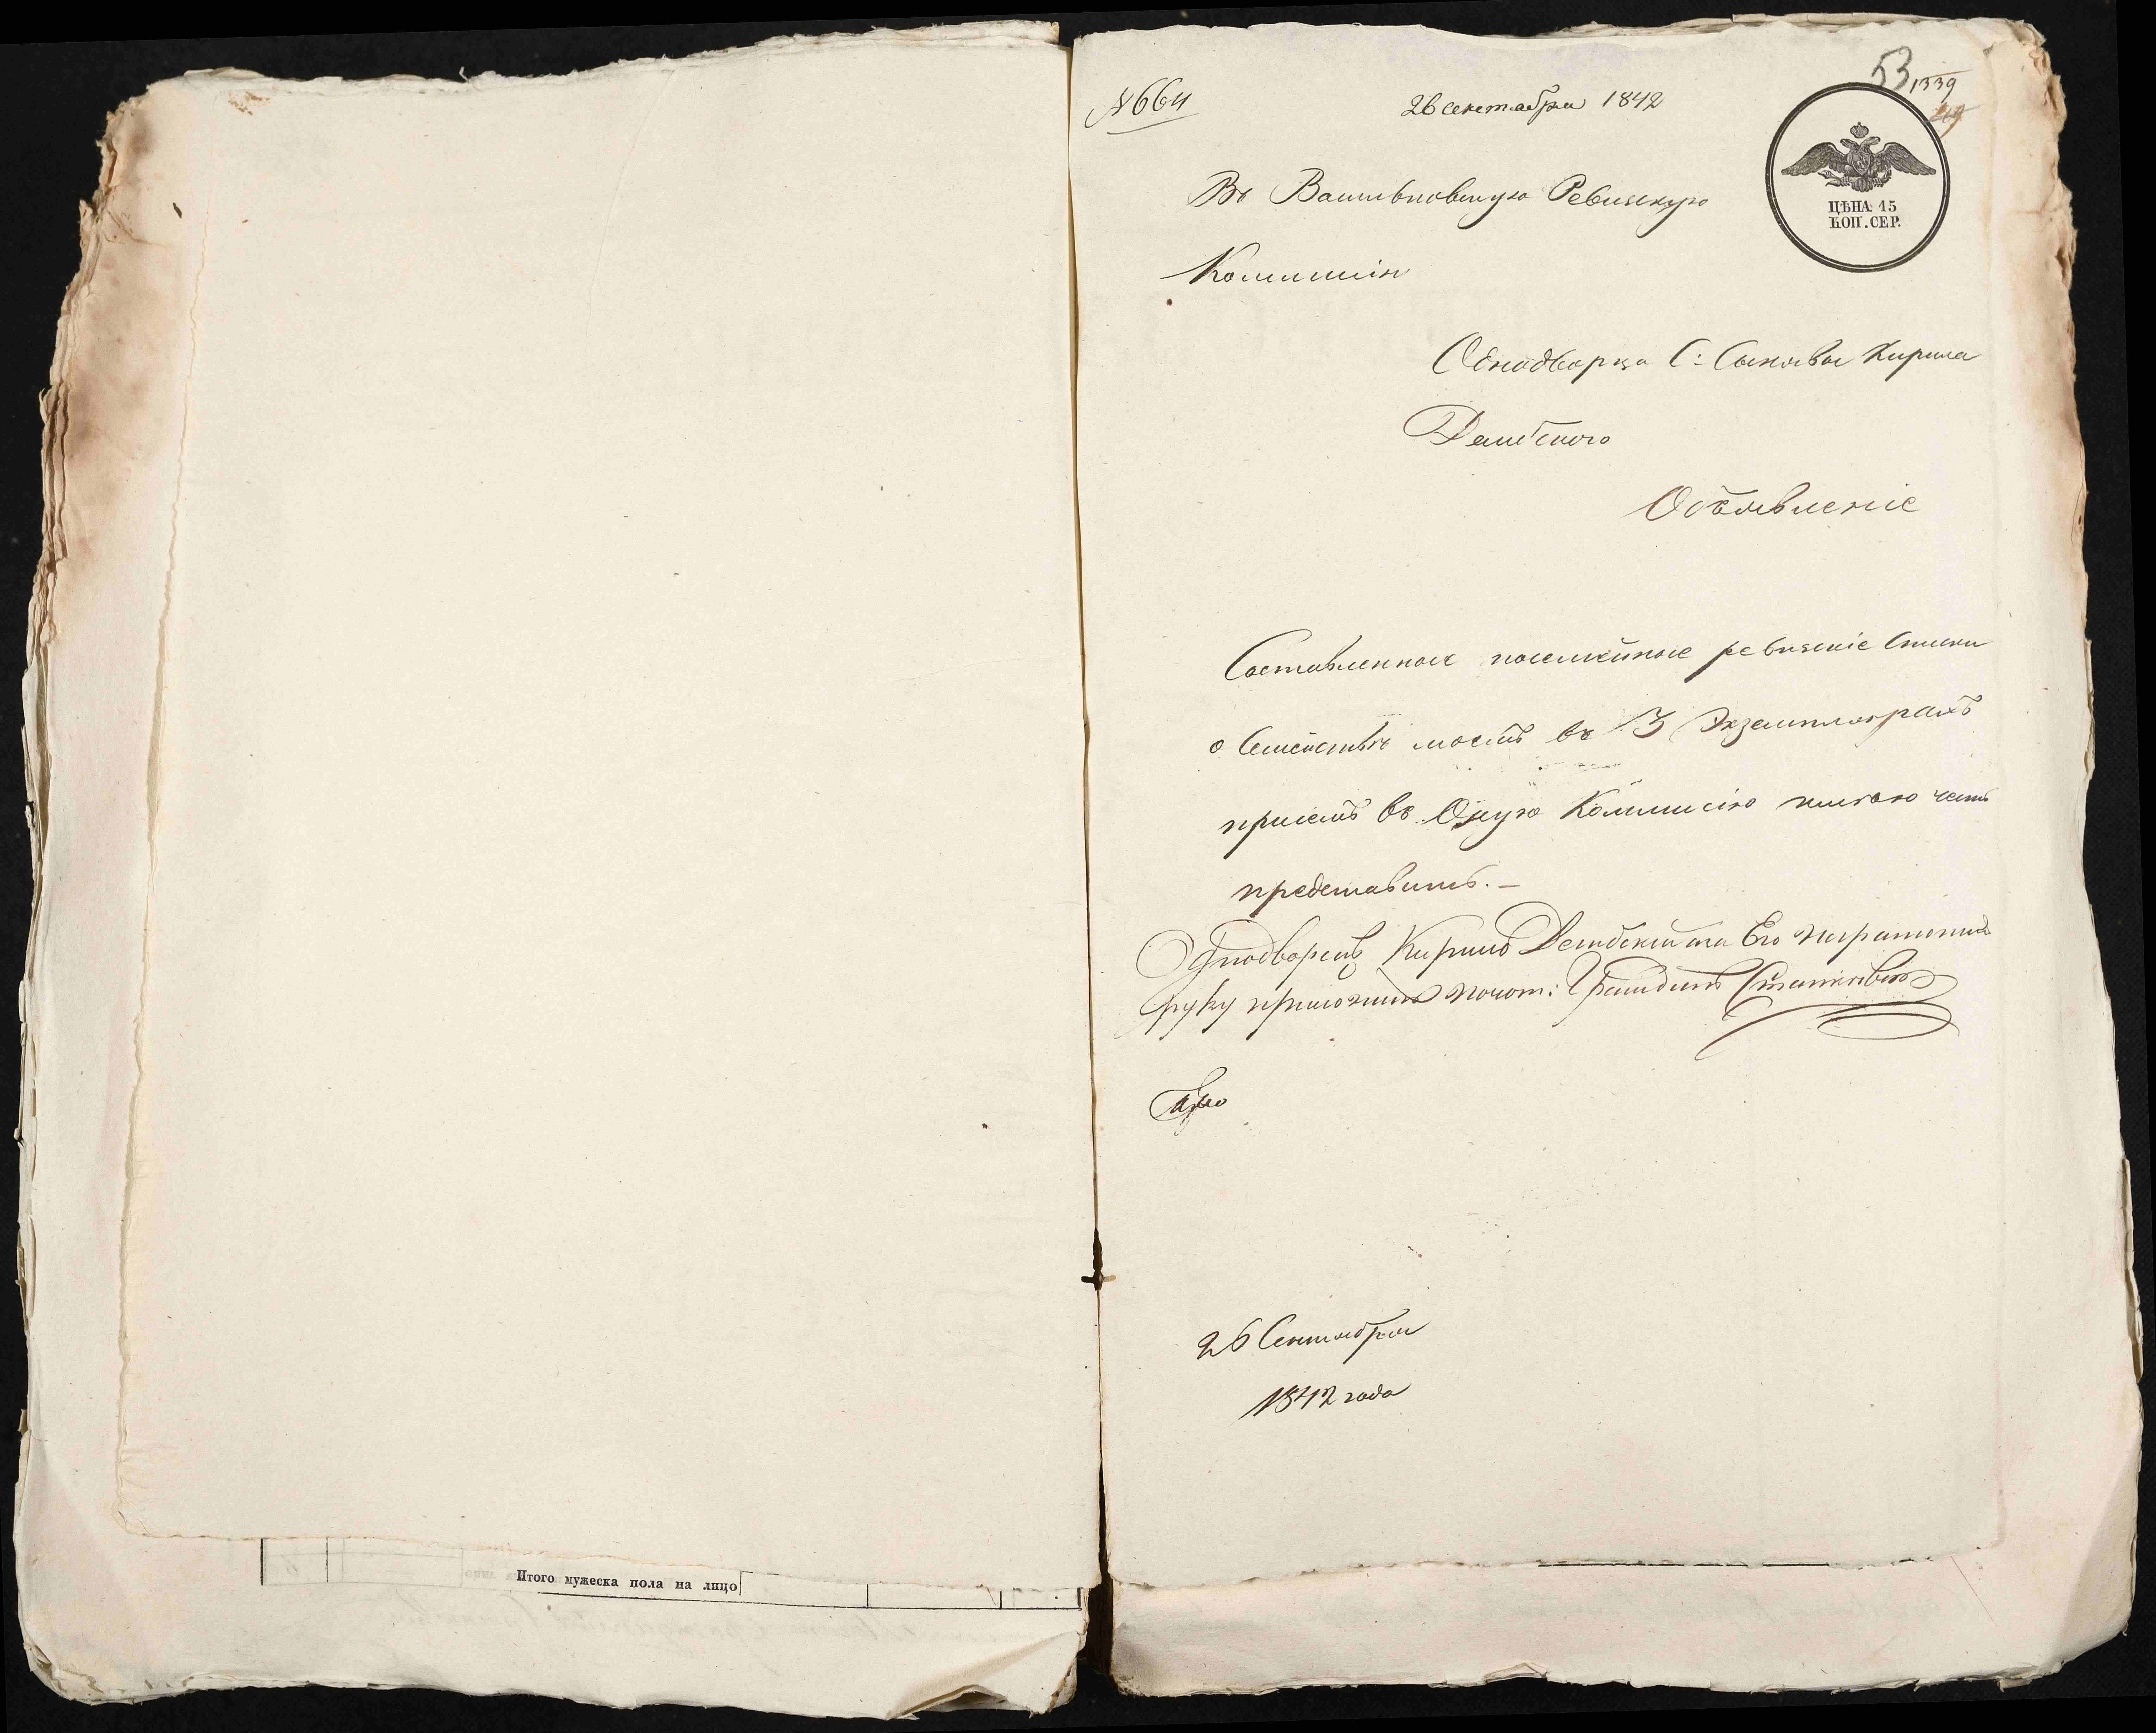 53
1339
49
№ 664
26 сентября 1842
ЦѢНА 15
КОП. СЕР.
Въ Васильковскую Ревизскую
Коммисію
Однодворца С: Кирила
Дембского
Объявленіе
Составленные посемейные ревизскіе списки
о Семействѣ моемъ въ 3 Экземплярахъ
при семъ въ Оную Коммисію имѣю честь
представить. –
Однодворецъ Кирилъ Дембскій а за Его неграмотныт
руку приложилъ почот: Гражданинъ
26 Сентября
1842 года
Итого мужеска пола на лицо